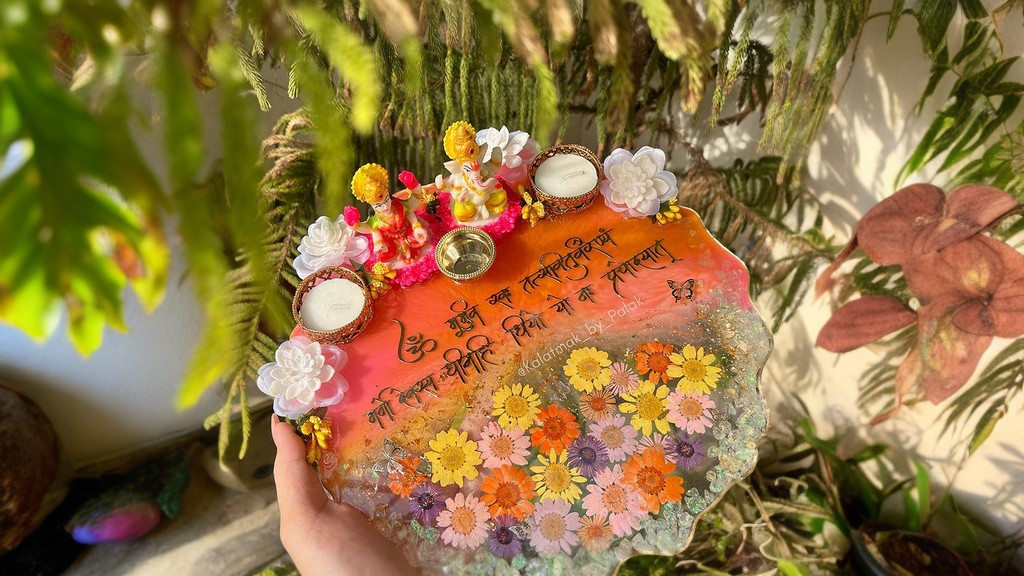 ॐ भूर्भुवः स्वः तत्सवितुर्वरेण्यं
भर्गो देवस्य धीमहि धियो यो नः प्रचोदयात्
@kalatmak_by_Palak